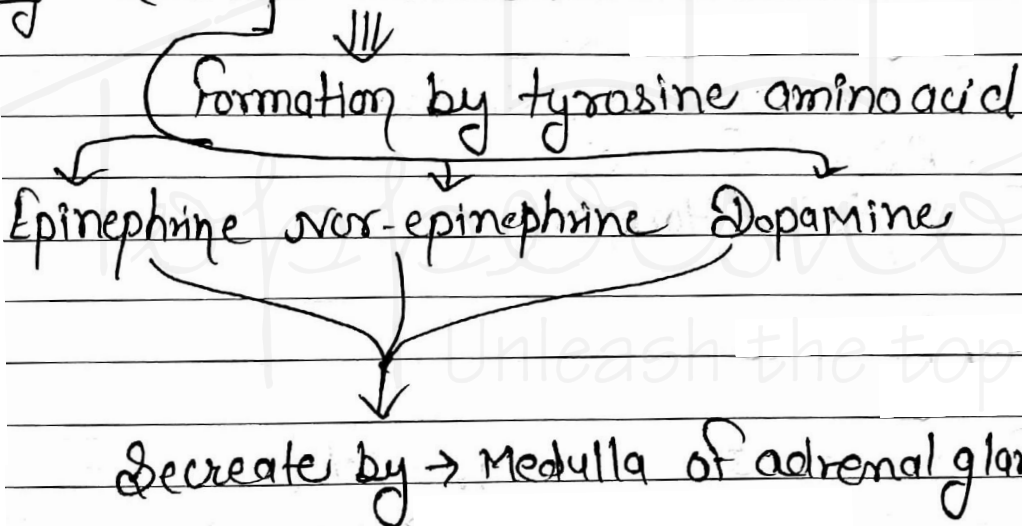 Formation by tyrosine amino acid
Epinephrine Nor-epinephrine Dopamine
Unleash the top
Secreate by → Medulla of adrenal glan